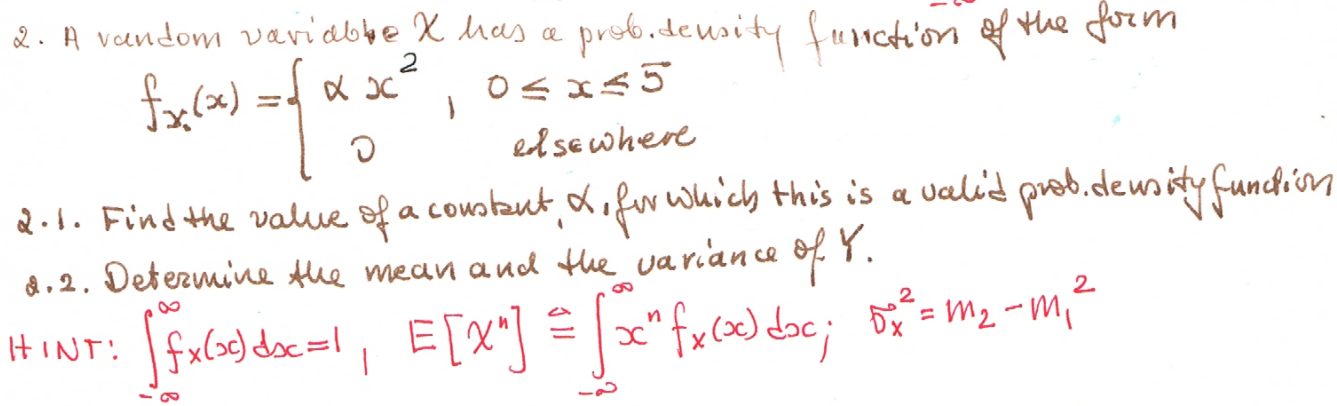 2. A random variable X has a prob. density function of the form
f_X(x) = { α x² , 0 ≤ x ≤ 5
0 elsewhere
2.1. Find the value of a constant, α, for which this is a valid prob. density function
2.2. Determine the mean and the variance of Y.
HINT: ∫_{-∞}^{∞} f_X(x) dx = 1, E[X^n] ≜ ∫_{-∞}^{∞} x^n f_X(x) dx; σ_X² = m₂ - m₁²